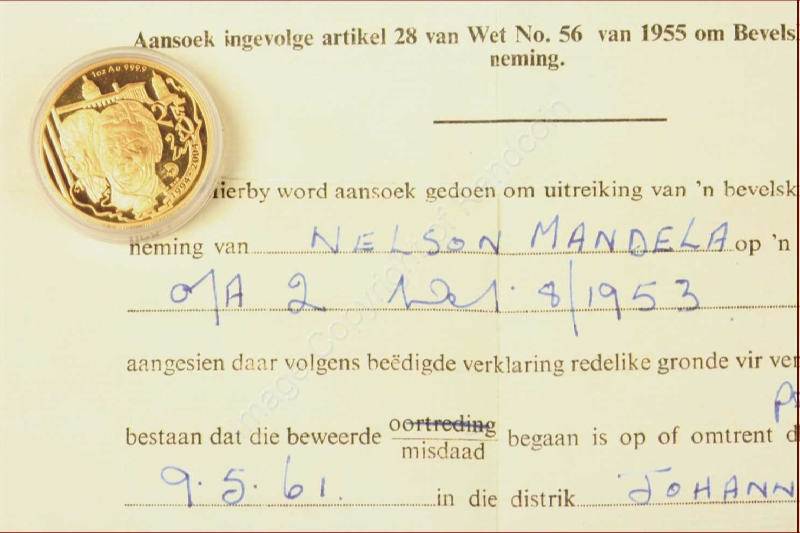 Aansoek ingevolge artikel 28 van Wet No. 56 van 1955 om Bevels
neming.
1oz Au 999.9
1994-2004
hierby word aansoek gedoen om uitreiking van 'n bevelsk
neming van NELSON MANDELA op 'n
o/A 2 Wet 8/1953
aangesien daar volgens beëdigde verklaring redelike gronde vir ver
bestaan dat die beweerde oortreding
misdaad begaan is op of omtrent d
9.5.61. in die distrik JOHANN
image Copyright of Randcoin